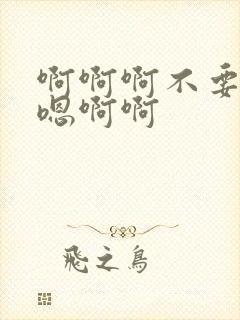 啊啊啊不要
嗯啊啊
飛之鳥